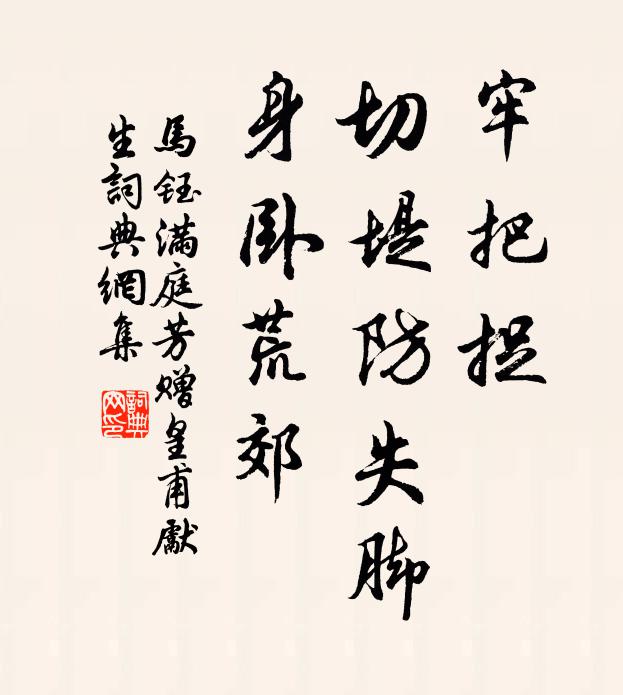 牢把捉
切堤防失脚
身卧荒郊
馬鈺满庭芳赠皇甫獻
生詞典網集
詞典
网印